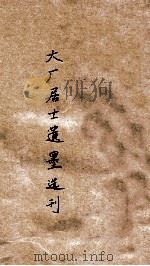 大厂居士遗墨选刊
mtoou.info